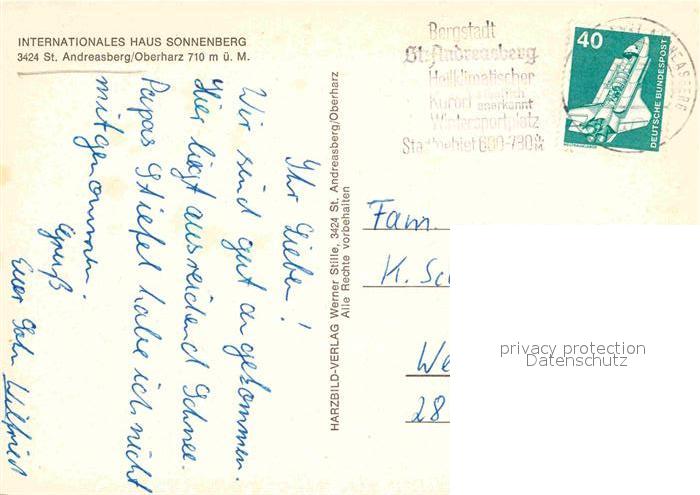 INTERNATIONALES HAUS SONNENBERG
3424 St. Andreasberg/Oberharz 710 m ü. M.
Ihr Lieben!
Wir sind gut angekommen.
Hier liegt ausreichend Schnee.
Papas Stiefel habe ich nicht
mitgenommen.
Gruß
Euer Sohn Wilfried
HARZBILD-VERLAG Werner Stille, 3424 St. Andreasberg/Oberharz
Alle Rechte vorbehalten
Bergstadt
St. Andreasberg
Heilklimatischer
Kurort staatlich anerkannt
Wintersportplatz
Stadtgebiet 600-790 m
40
DEUTSCHE BUNDESPOST
Fam.
K. Sc
We
28
privacy protection
Datenschutz